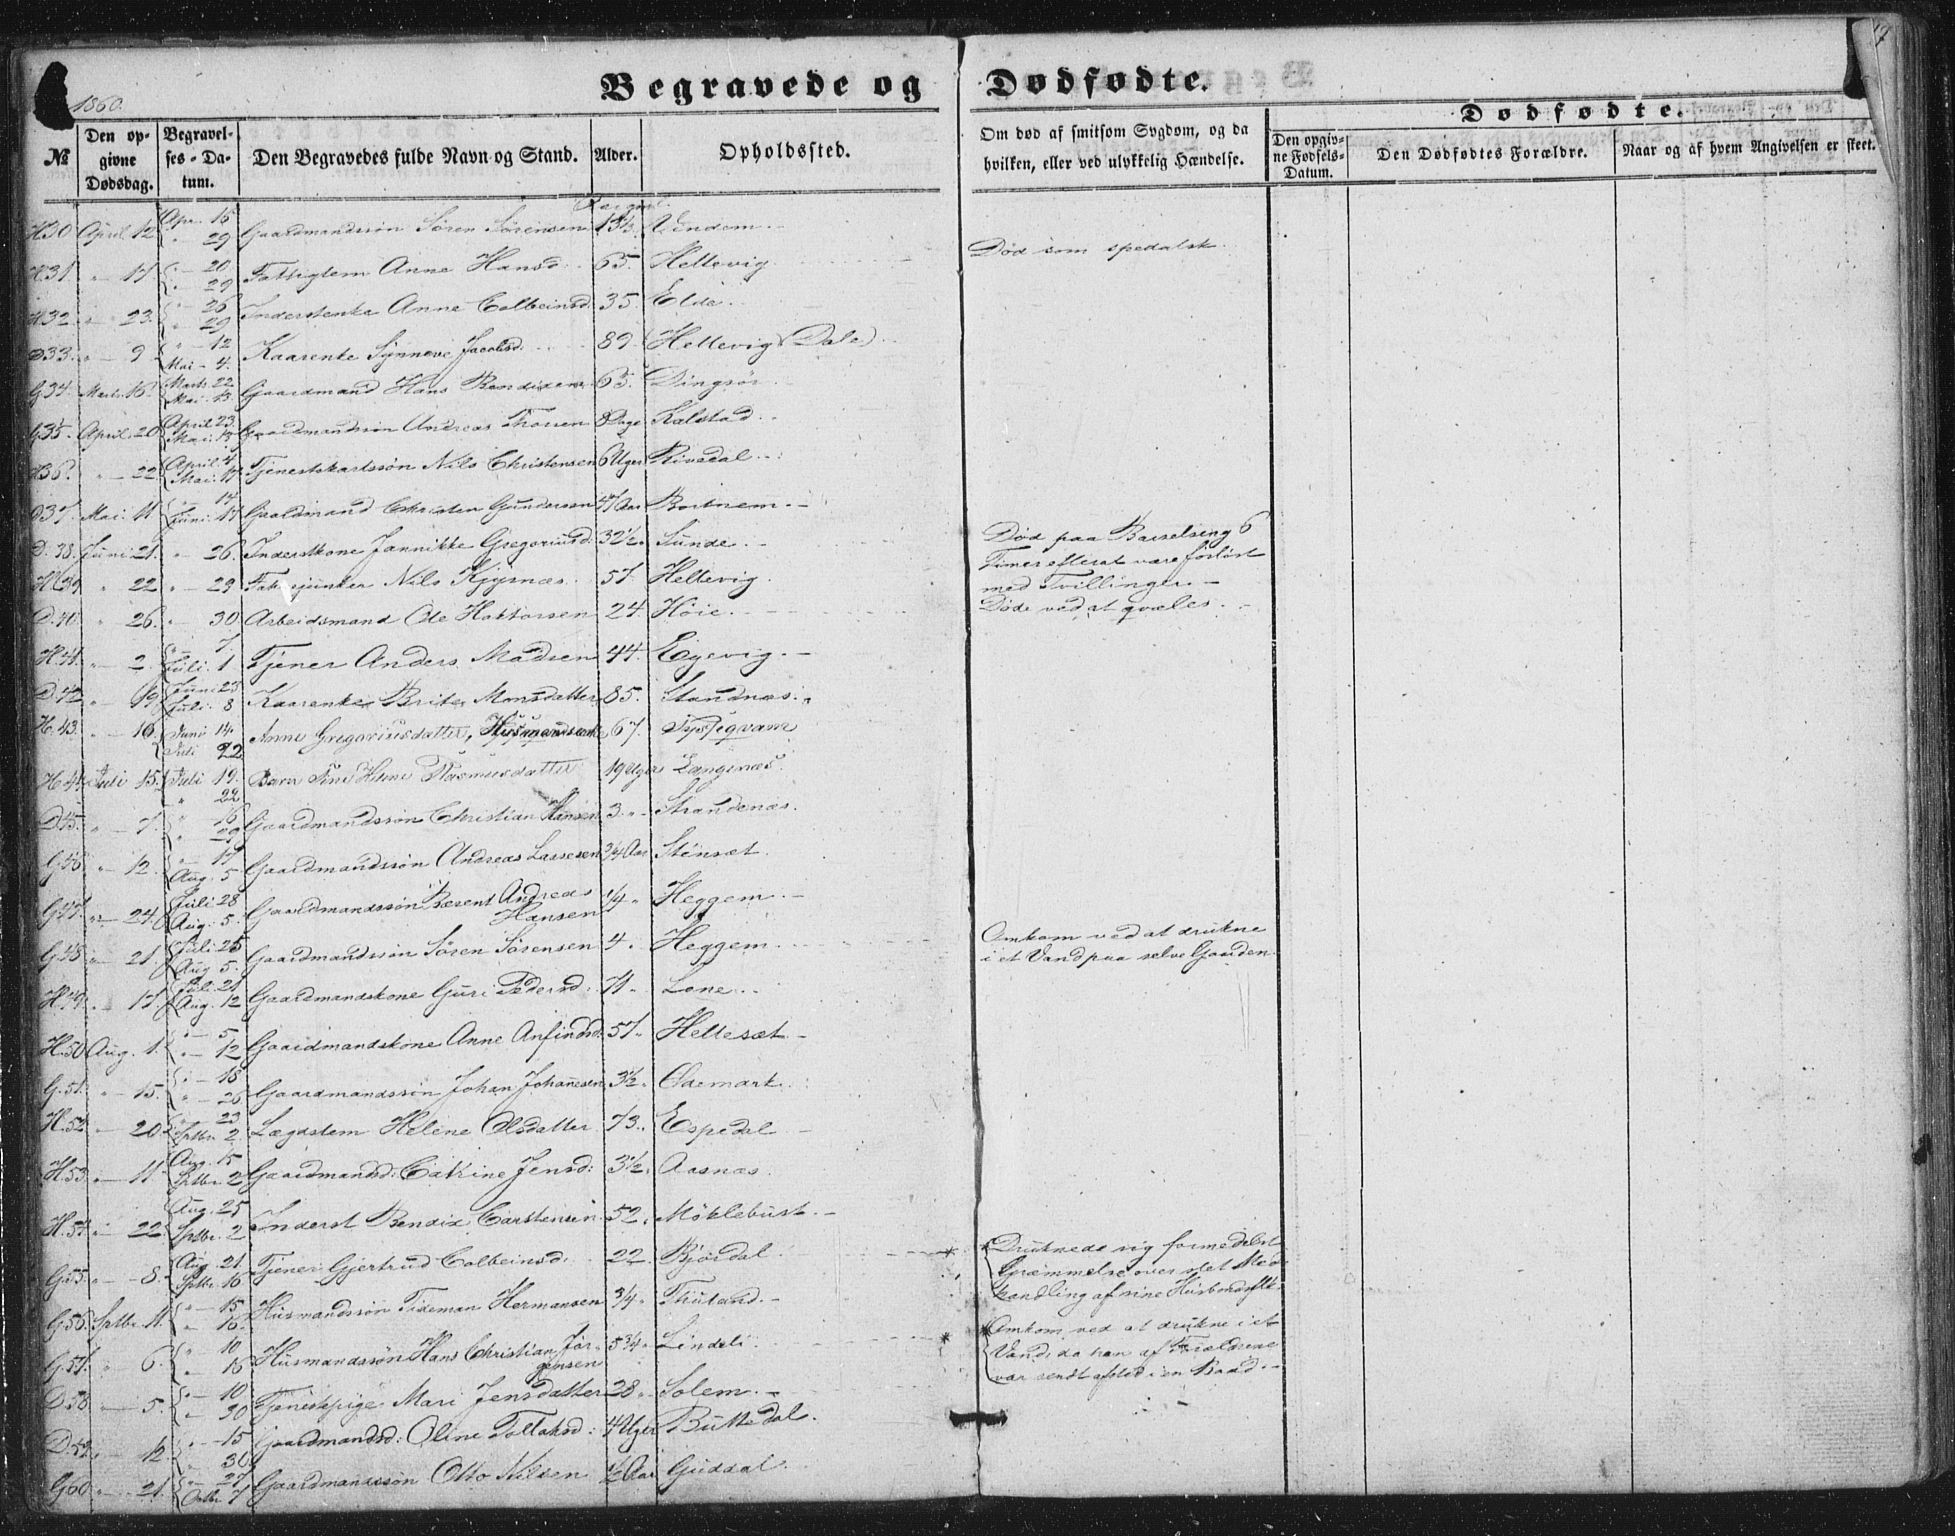 1860.
Begravede og Dødfødte.
19
№
Den opgivne Dødsdag.
Begravelses-Datum.
Den Begravedes fulde Navn og Stand.
Alder.
Opholdssted.
Om død af smitsom Sygdom, og da hvilken, eller ved ulykkelig Hændelse.
Dødfødte.
Den opgivne Fødsels-Datum.
Den Dødfødtes Forældre.
Naar og af hvem Angivelsen er skeet.
H30 April 12 Apr. 15 " 29 Gaardmandssøn Søren Sørensen Vindem
H31 " 17 " 20 " 29 Fattiglem Anne Hansd. 65 Hellevig Død som spedalsk.
H32 " 23. " 26 " 29 Inderstenke Anne Colbeinsd. 35 Elde
D33 " 9 " 12 Mai 4. Kaarenke Synneve Jacobsd. 89 Hellevig (Dale)
G34. Marts 16. Marts 22 Mai 13. Gaardmand Hans Bendixen 65. Dingsør
G35. April 20 April 23. Mai 13 Gaardmandssøn Andreas Thorsen 8 Dage Kalstad
H36. " 22 April Mai 17 Tjenestkarlssøn Nils Christensen 6 Uger Rivedal
D37. Mai. 11 " 14 Juni 17 Gaardmand Christen Gundersen 47 Aar Bortnem
D. 38. Juni 21. " 26. Inderstkone Jannikke Gregoriusd. 32½ Sunde Død paa Barselseng 6
Timer efterat være forløst
med Tvillinger.
H39 " 22 " 29 Nils Kjyrnæs 57. Hellevig
D.40. " 26. " 30 Arbeidsmand Ole Haktorsen 24. Høie Døde ved at qvæles.
H.41. " 2. " 7. Juli. 1 Tjener Anders Madsen 44. Eyevig
D.42 " 19 Juni 25 Juli 8 Kaarenke Brite Monsdatter 85. Standnæs
H.43. " 10. Juni 14. Juli 22 Anne Gregoriusdatter, Husmandsenke 67. Tysseqvam
H.44 Juli 15. Juli 19. " 22 Barn Hanne Rasmusdatter 19 Uger Langenæs.
D45. " 7. " 16 " 29 Gaardmandssøn Christian Hansen 3. Strandenæs.
G.46 " 12. " 17 Aug. 5 Gaardmandssøn Andreas Lassesen ¾ Aar Stønsæt.
G.47. " 24. Juli 28 Aug. 5. Gaardmandssøn Berent Andreas Hansen ¼ Heggem
G.48 " 21. Juli 25 Aug 5. Gaardmandssøn Søren Sørensen 4. Heggem Omkom ved at drukne
i et Vand paa selve Gaarden.
H.49. " 17 Juli. 21 Aug. 12 Gaardmandskone Guri Pedersd. 71 Lone
H.50 Aug. 1. " 5 " 12 Gaardmandskone Anne Anfindsd. 57 Hellesæt
G.51. " 15. " 18 " 26 Gaardmandssøn Johan Johanesen 3½ Ødemark
H.52 " 20. " 23 Sptbr. 2 Lægdslem Helene Olsdatter 73. Espedal
H.53. " 11 Aug. 15 Sptbr. 2 Gaardmandsd. Catrine Jensd: 3½. Aasnæs.
H.54. " 22. Aug. 25 Sptbr. 2 Inderst Bendix Carstensen 52. Møklebust
G.55. " 8. Aug. 21. Sptbr. 16 Tjener Gjertrud Colbeinsd. 22. Bjørdal * * Druknede sig formedelst
Græmmelse over slet Med-
handling af sine Husbondsfolk.
G.56. Sptbr. 11. " 15 " 16. Husmandssøn Tideman Hermansen ¾ Thuland
G57. " 6. " 10 " 16 Husmandssøn Hans Christian Jørgensen 5¾ Lindeli * * Omkom ved at drukne i et
Vand, da han af Forældrene
var sendt afsted i en Baad.
D.58. " 5. " 10 " 30 Tjenestpige Mari Jensdatter 28 Solem
D.59. " 12. " 15 " 30 Gaardmandsd: Oline Tollaksd: 4 Uger Buttedal.
G60 " 21. " 27 Octbr. 7 Gaardmandssøn Otto Nilsen ½ Aar Guddal